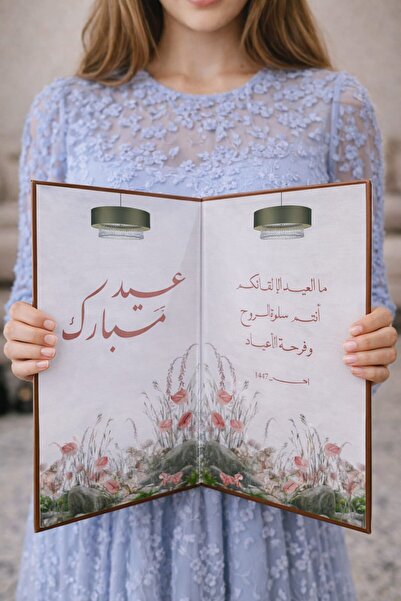 عيد
مبارك
ما العيد إلا لقائكم
أنتم سلوة الروح
وفرحة الأعياد
1447